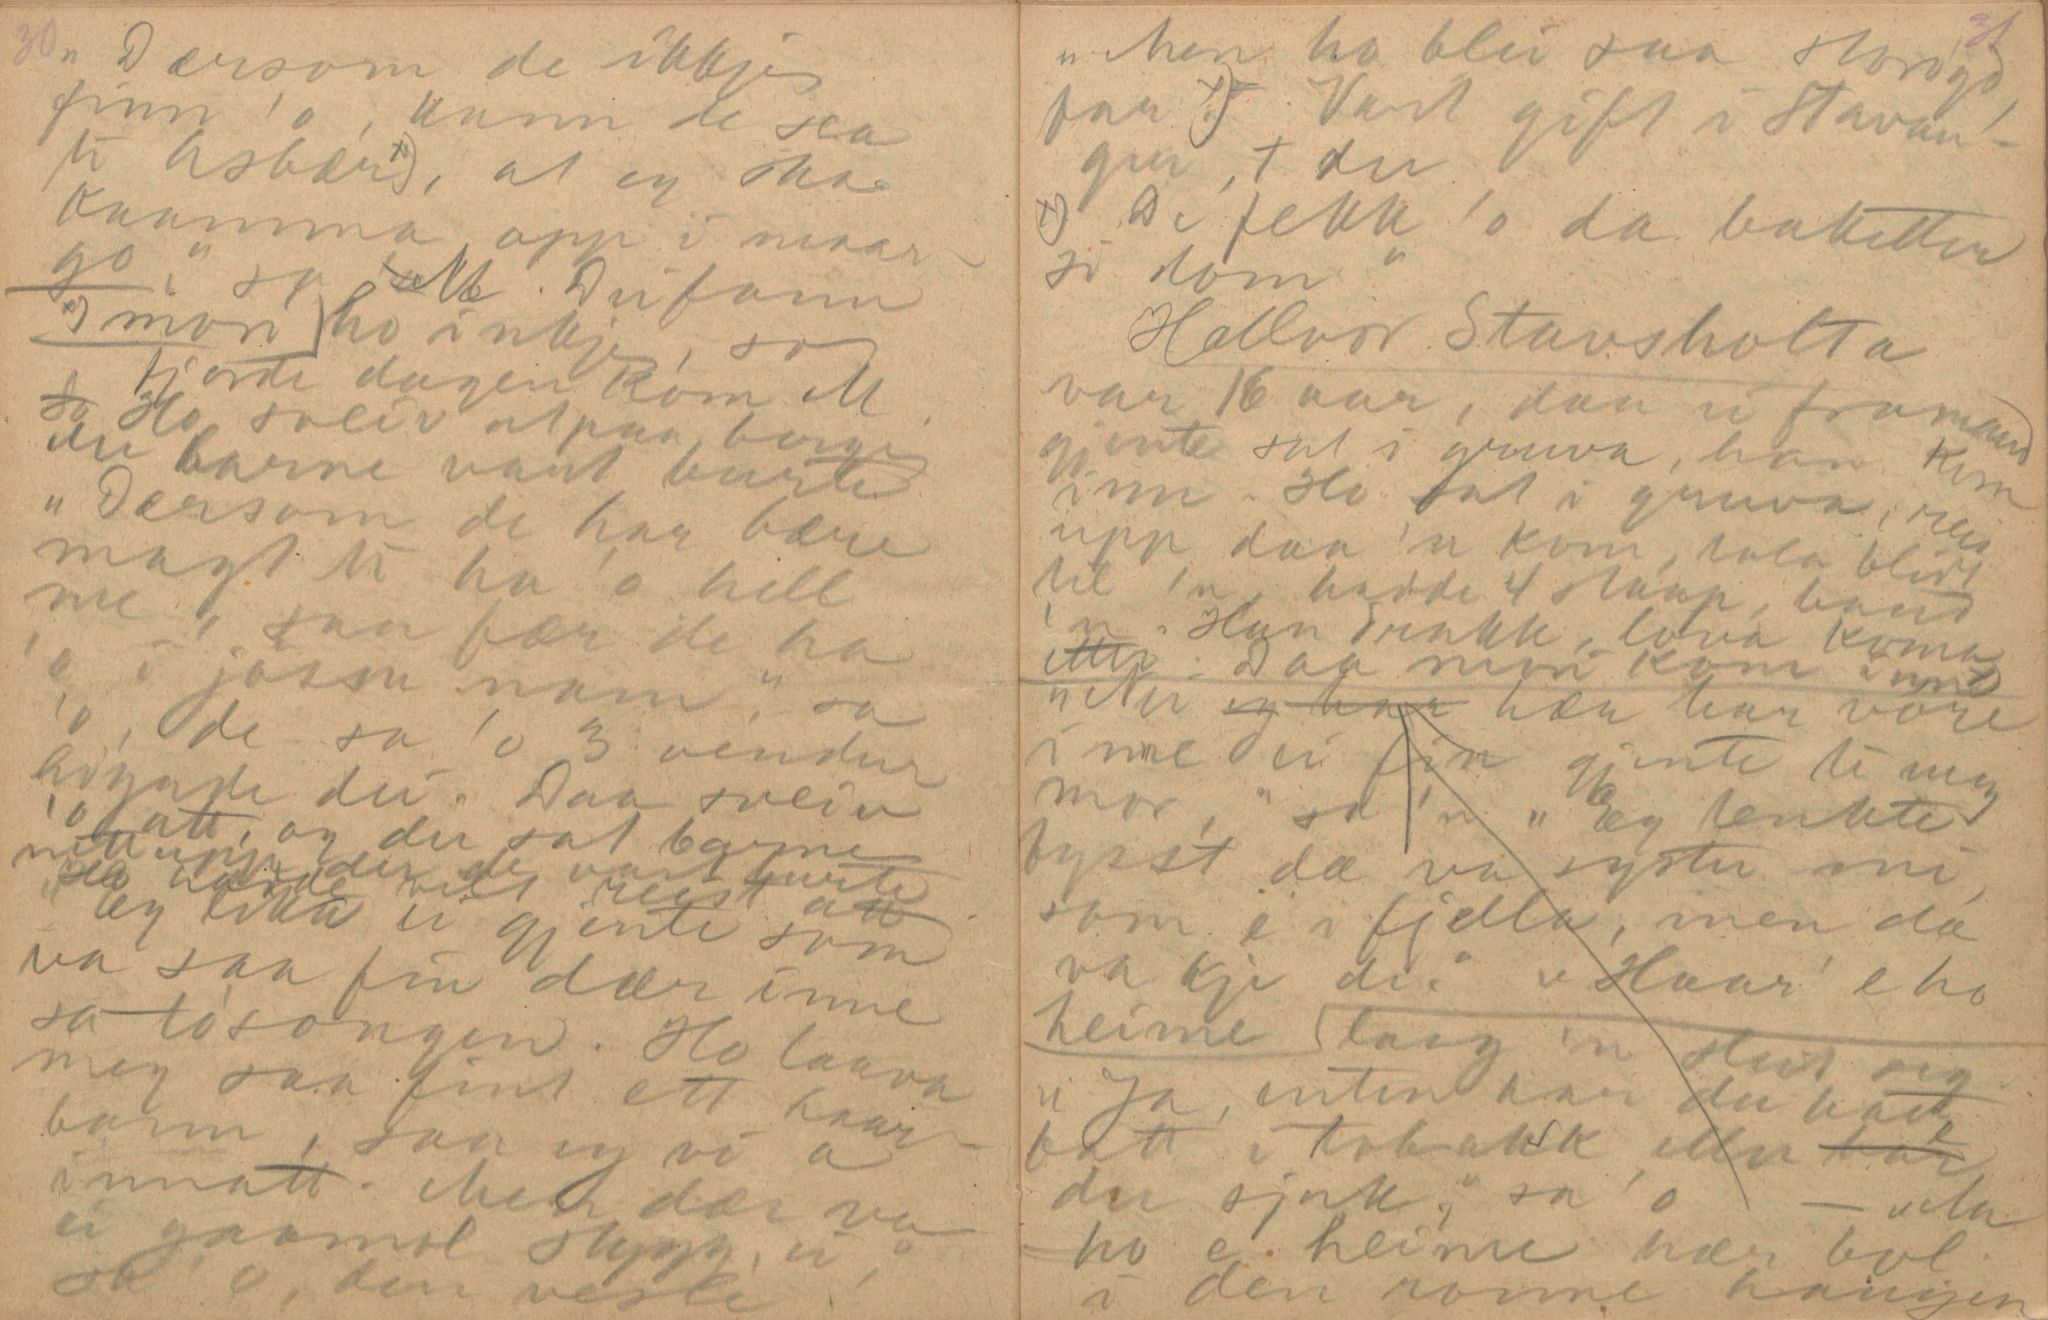 30
„Dærsom de ikkje
finn 'o, kunn de sea
ti Asbær x), at eg ska
kaamma opp i maar-
go," sa M. Dei fann
x) mori ho inkje, so
fjorde dagen kom M.
Ho sveiv utpaa bergi
der barne vart burte
„Dærsom de har bære
magt ti ha 'o hell
me, saa fær de ha
'o i jøssu namn," sa
'o, de sa 'o 3 vendur
høgade dei. Daa sveiv
'o att, og der sat barne
nett uppi der de vart burte
„Eg lika ei gjente som
va saa fin dær inne
sa tøsongen. Ho laava
meg saa fint ett haar-
bann, saa eg vi a
innatt. Men dær va
ei gaamol stygg ei,"
sa 'o, den vesle!
31
„Men ho blei saa storøgd,
far x) Vart gift i Stavan-
ger, + der
x) Di fekk 'o da baketter
si dom"
Hallvor Stavsholta
var 16 aar, daa ei framand
gjente sat i gruva, han kom
inn. Ho sat i gruva, reis
upp daa 'n kom, tala blidt
til 'n, hadde 4 staup, baud
'n. Han drakk, lova koma
etter. Daa mori kom inn
„Nei eg har hær har vore
inne ei fin gjente te meg
mor," sa 'n „Eg tenkte
fysst dæ va syster mi,
som e i fjella, men dæ
va kje di." „Haar e ho
heime laag 'n sleit seg
„Ja, enten har du hatt
fatt i tobakk eller hæ
du sjuk," sa 'o —
ho e heime hær bol
i den ronne haugen